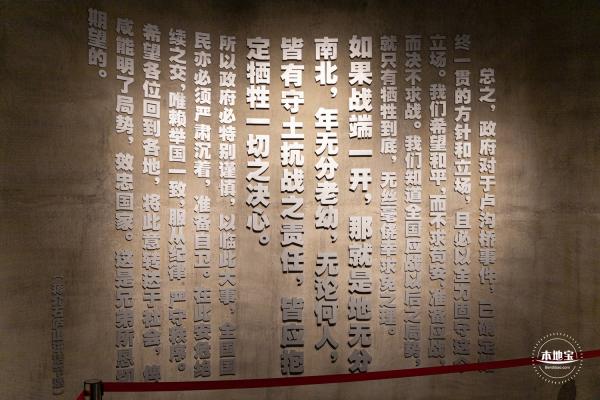 总之，政府对于卢沟桥事件，已确定始
终一贯的方针和立场，且必以全力固守这个
立场。我们希望和平，而不求苟安，准备应战，
而决不求战。我们知道全国应战以后之局势，
就只有牺牲到底，无丝毫侥幸求免之理。
如果战端一开，那就是地无分
南北，年无分老幼，无论何人，
皆有守土抗战之责任，皆应抱
定牺牲一切之决心。
所以政府必特别谨慎，以临此大事，全国国
民亦必须严肃沉着，准备自卫。在此安危绝
续之交，唯赖举国一致，服从纪律，严守秩序。
希望各位回到各地，将此意转达于社会，俾
咸能明了局势，效忠国家。这是兄弟所恳切
期望的。
本地宝
Bendibao.com